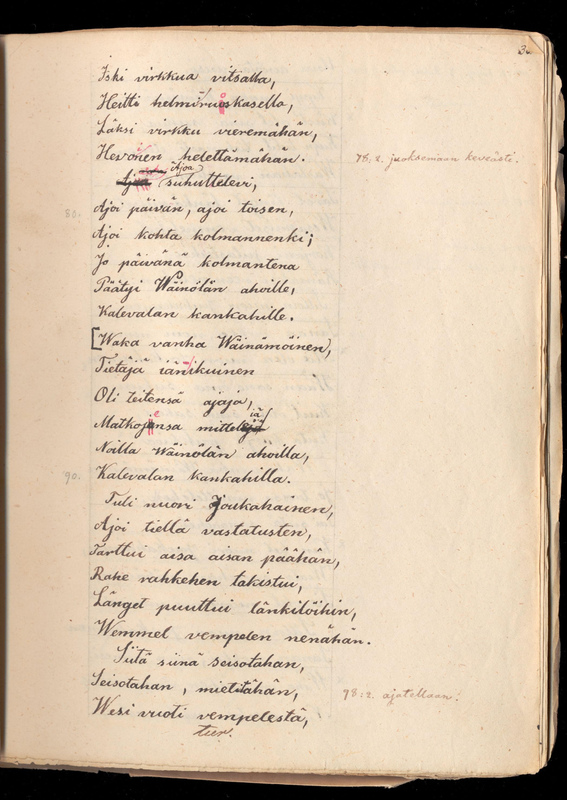 3
Iski virkkua vitsalla,
Heitti helmiruoskasella,
Läksi virkku vieremähän,
Hevonen helettämähän.
78. 2. juoksemaan keveästi.
Ajoa suhuttelevi,
80. Ajoi päivän, ajoi toisen,
Ajoi kohta kolmannenki;
Jo päivänä kolmantena
Päätyi Wäinölän ahoille,
Kalevalan kankahille.
[Waka vanha Wäinämöinen,
Tietäjä iänikuinen
Oli teitensä ajaja,
Matkojensa mitteliä
Noilla Wäinölän ahoilla,
90. Kalevalan kankahilla.
Tuli nuori Joukahainen,
Ajoi tiellä vastatusten,
Tarttui aisa aisan päähän,
Rahe rahkehen takistui,
Länget puuttui länkilöihin,
Wemmel vempelen nenähän.
Siitä siinä seisotahan,
Seisotahan, mietitähän,
98:2. ajatellaan.
Wesi vuoti vempelestä,
tur.